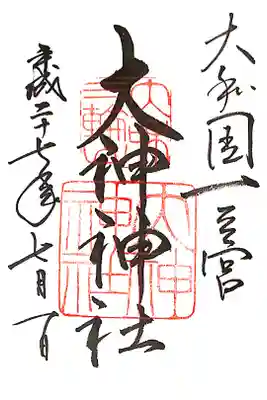 大和国一之宮
大神神社
平成二十七年七月一日